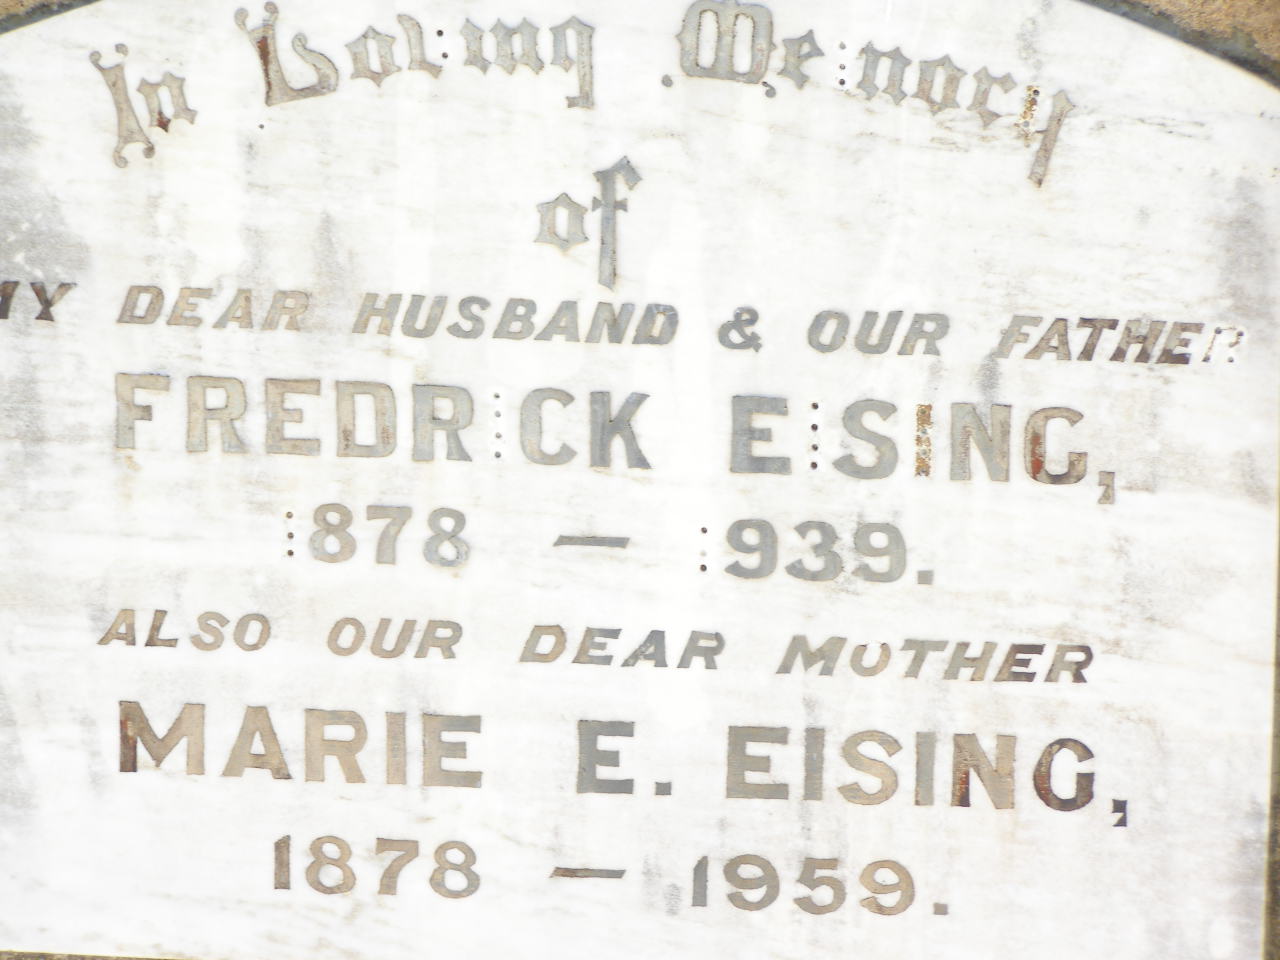 In Loving Memory
of
MY DEAR HUSBAND & OUR FATHER
FREDRICK EISING,
1878 — 1939.
ALSO OUR DEAR MOTHER
MARIE E. EISING,
1878 — 1959.